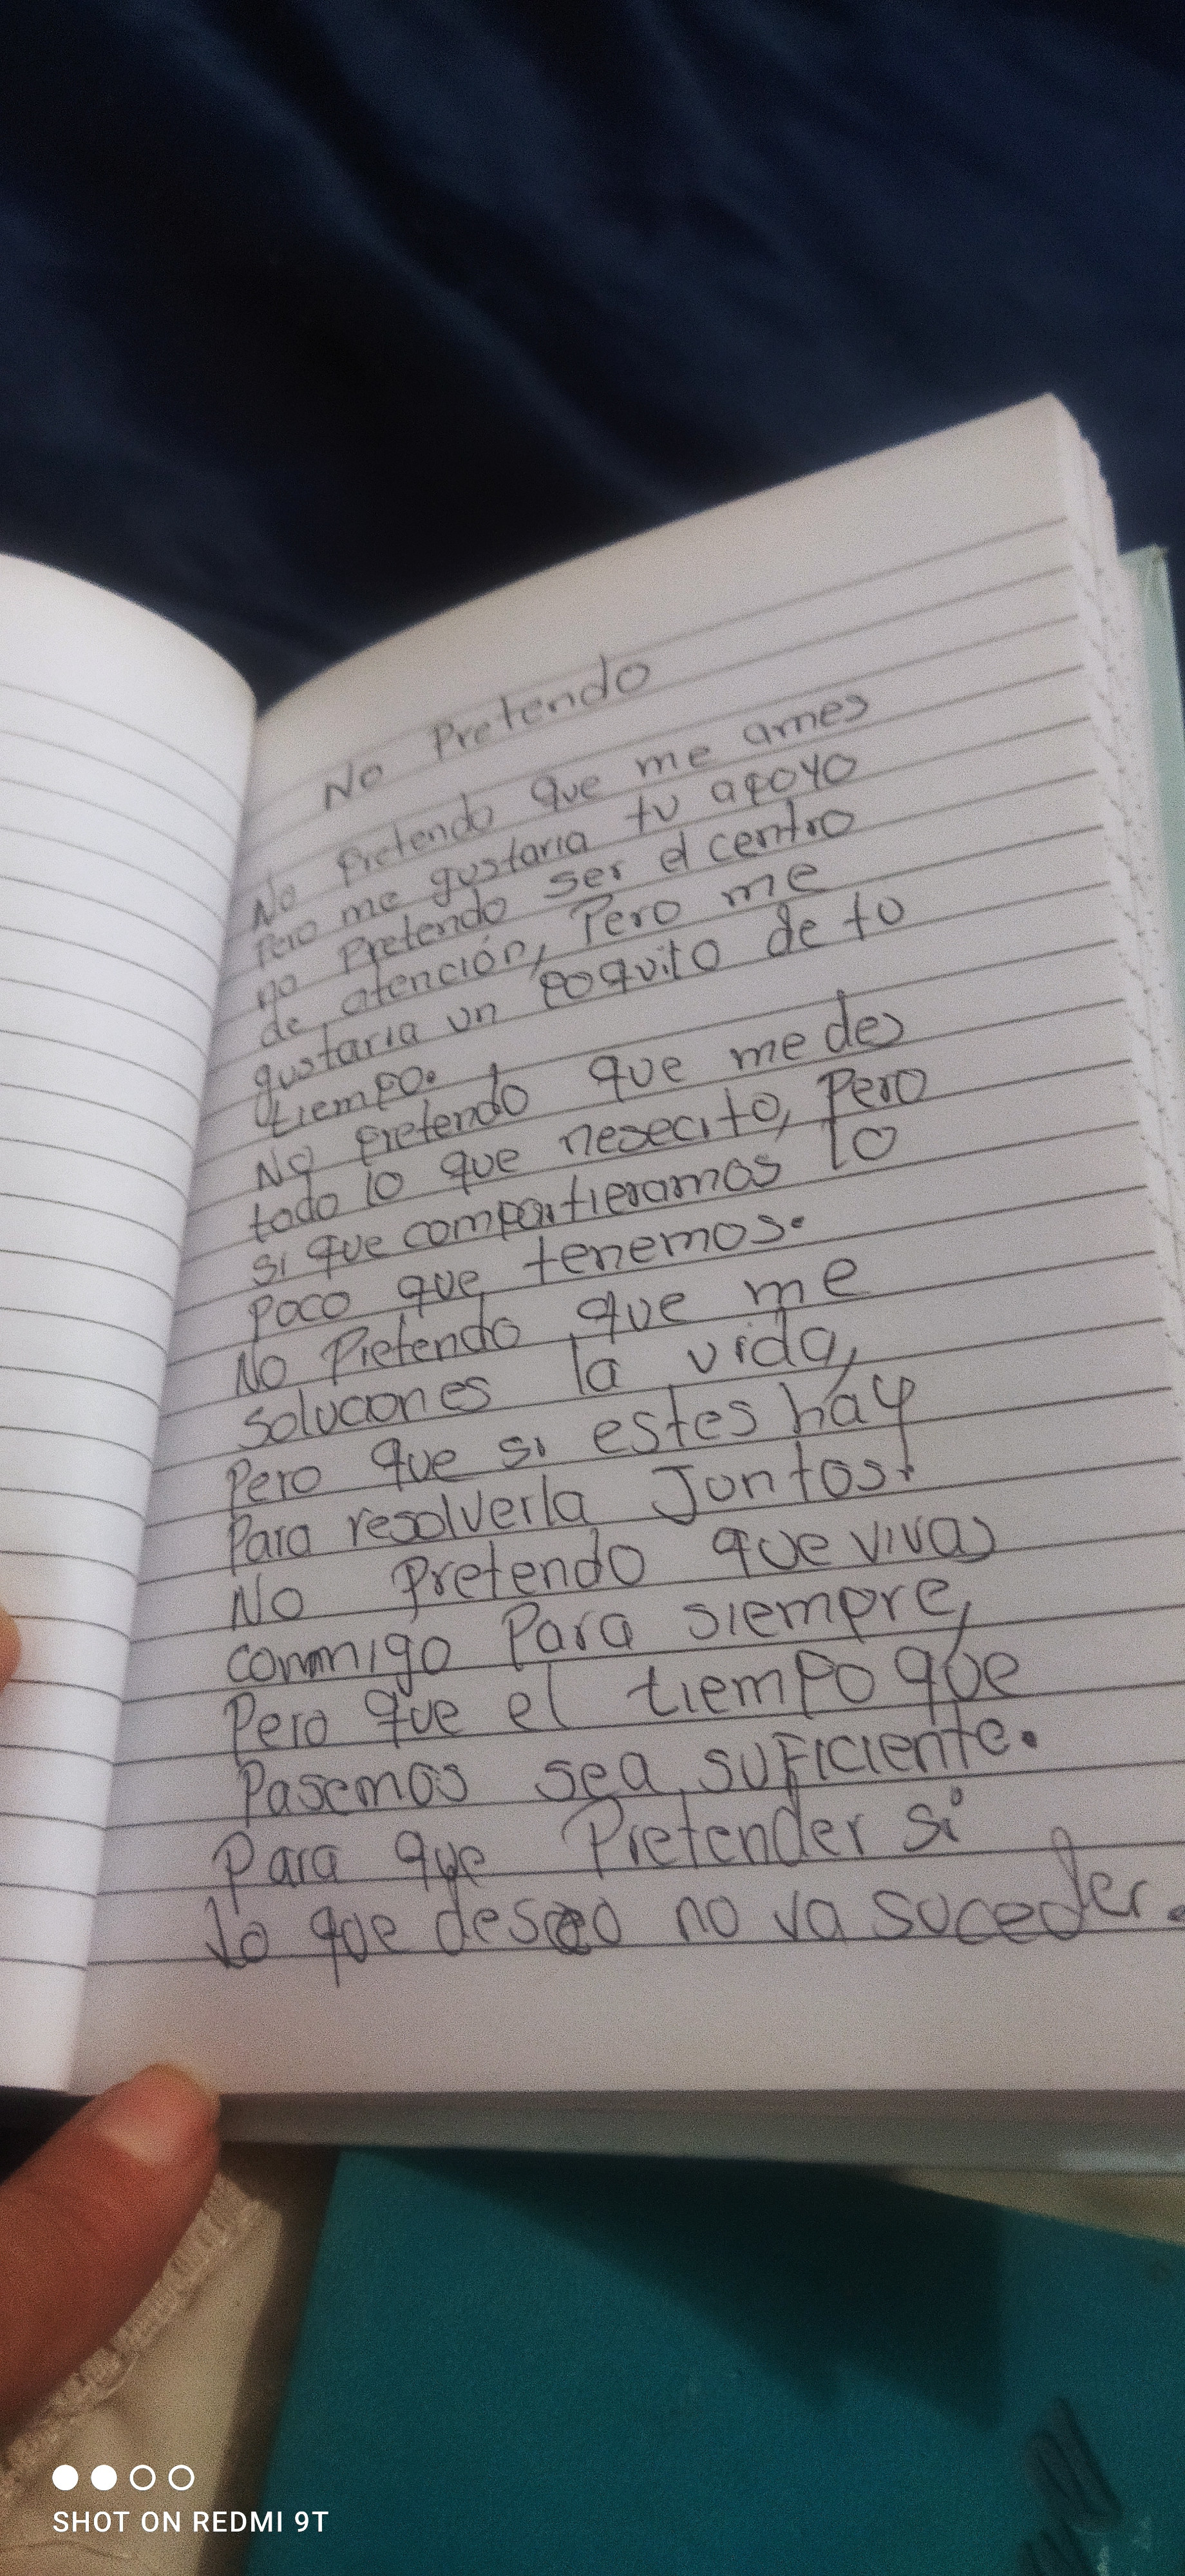 No Pretendo
No Pretendo que me ames
Pero me gustaria tu apoyo
no Pretendo ser el centro
de atención, Pero me
gustaria un poquito de tu
tiempo.
No Pretendo que me des
todo lo que nesecito, Pero
si que compartieramos lo
Poco que tenemos.
No Pretendo que me
soluciones la vida,
Pero que si estes hay
Para resolverla Juntos.
No Pretendo que vivas
conmigo Para siempre,
Pero que el tiempo que
Pasemos sea suficiente.
Para que Pretender si
lo que deseo no va suceder.
SHOT ON REDMI 9T